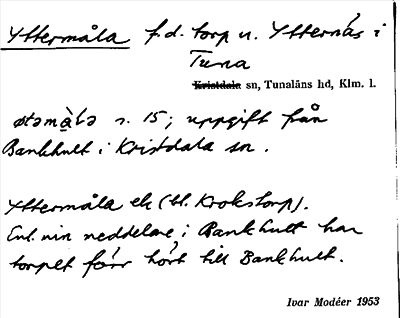 Yttermåla f.d. torp u. Ytternäs i
Tuna
Kristdala sn, Tunaläns hd, Klm. l.
øtəmàla s. 15; uppgift från
Bankhult i Kristdala sn.
Yttermåla ek (bl. Krokstorp).
Enl. min meddelare i Bankhult har
torpet förr hört till Bankhult.
Ivar Modéer 1953